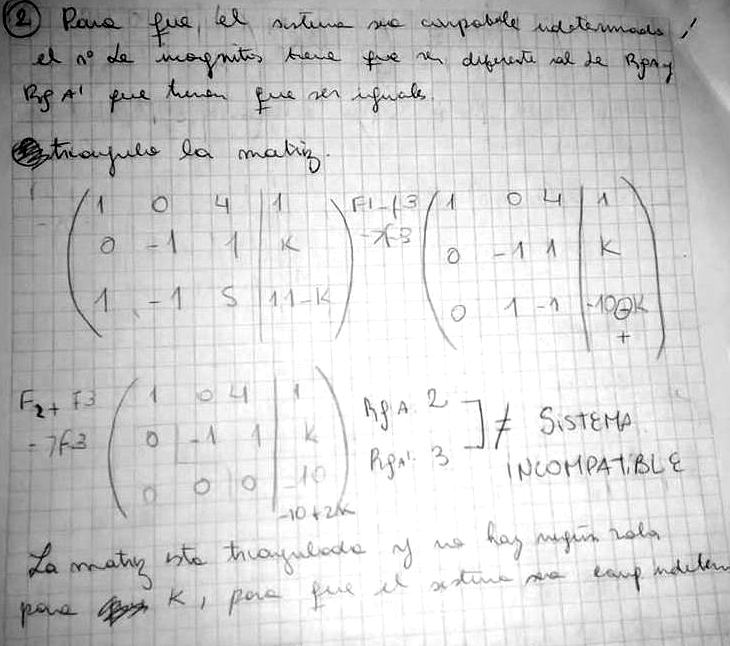 ② Para que, el sistema sea compatible indeterminado,
el nº de incognitas tiene que ser diferente al de RgA y
Rg A' que tienen que ser iguales.
triangulo la matriz.
1 0 4 | 1 F1-f3 1 0 4 | 1
0 -1 1 | K →f3 0 -1 1 | K
1 -1 5 | 11-K 0 1 -1 | -10 K
+
F2+ F3 1 0 4 | 1 RgA: 2 ≠ SISTEMA
→f3 0 -1 1 | K RgA': 3 INCOMPATIBLE
0 0 0 | -10
-10+2K
La matriz esta triangulada y no hay ningún valor
para K, para que el sistema sea comp indeterm